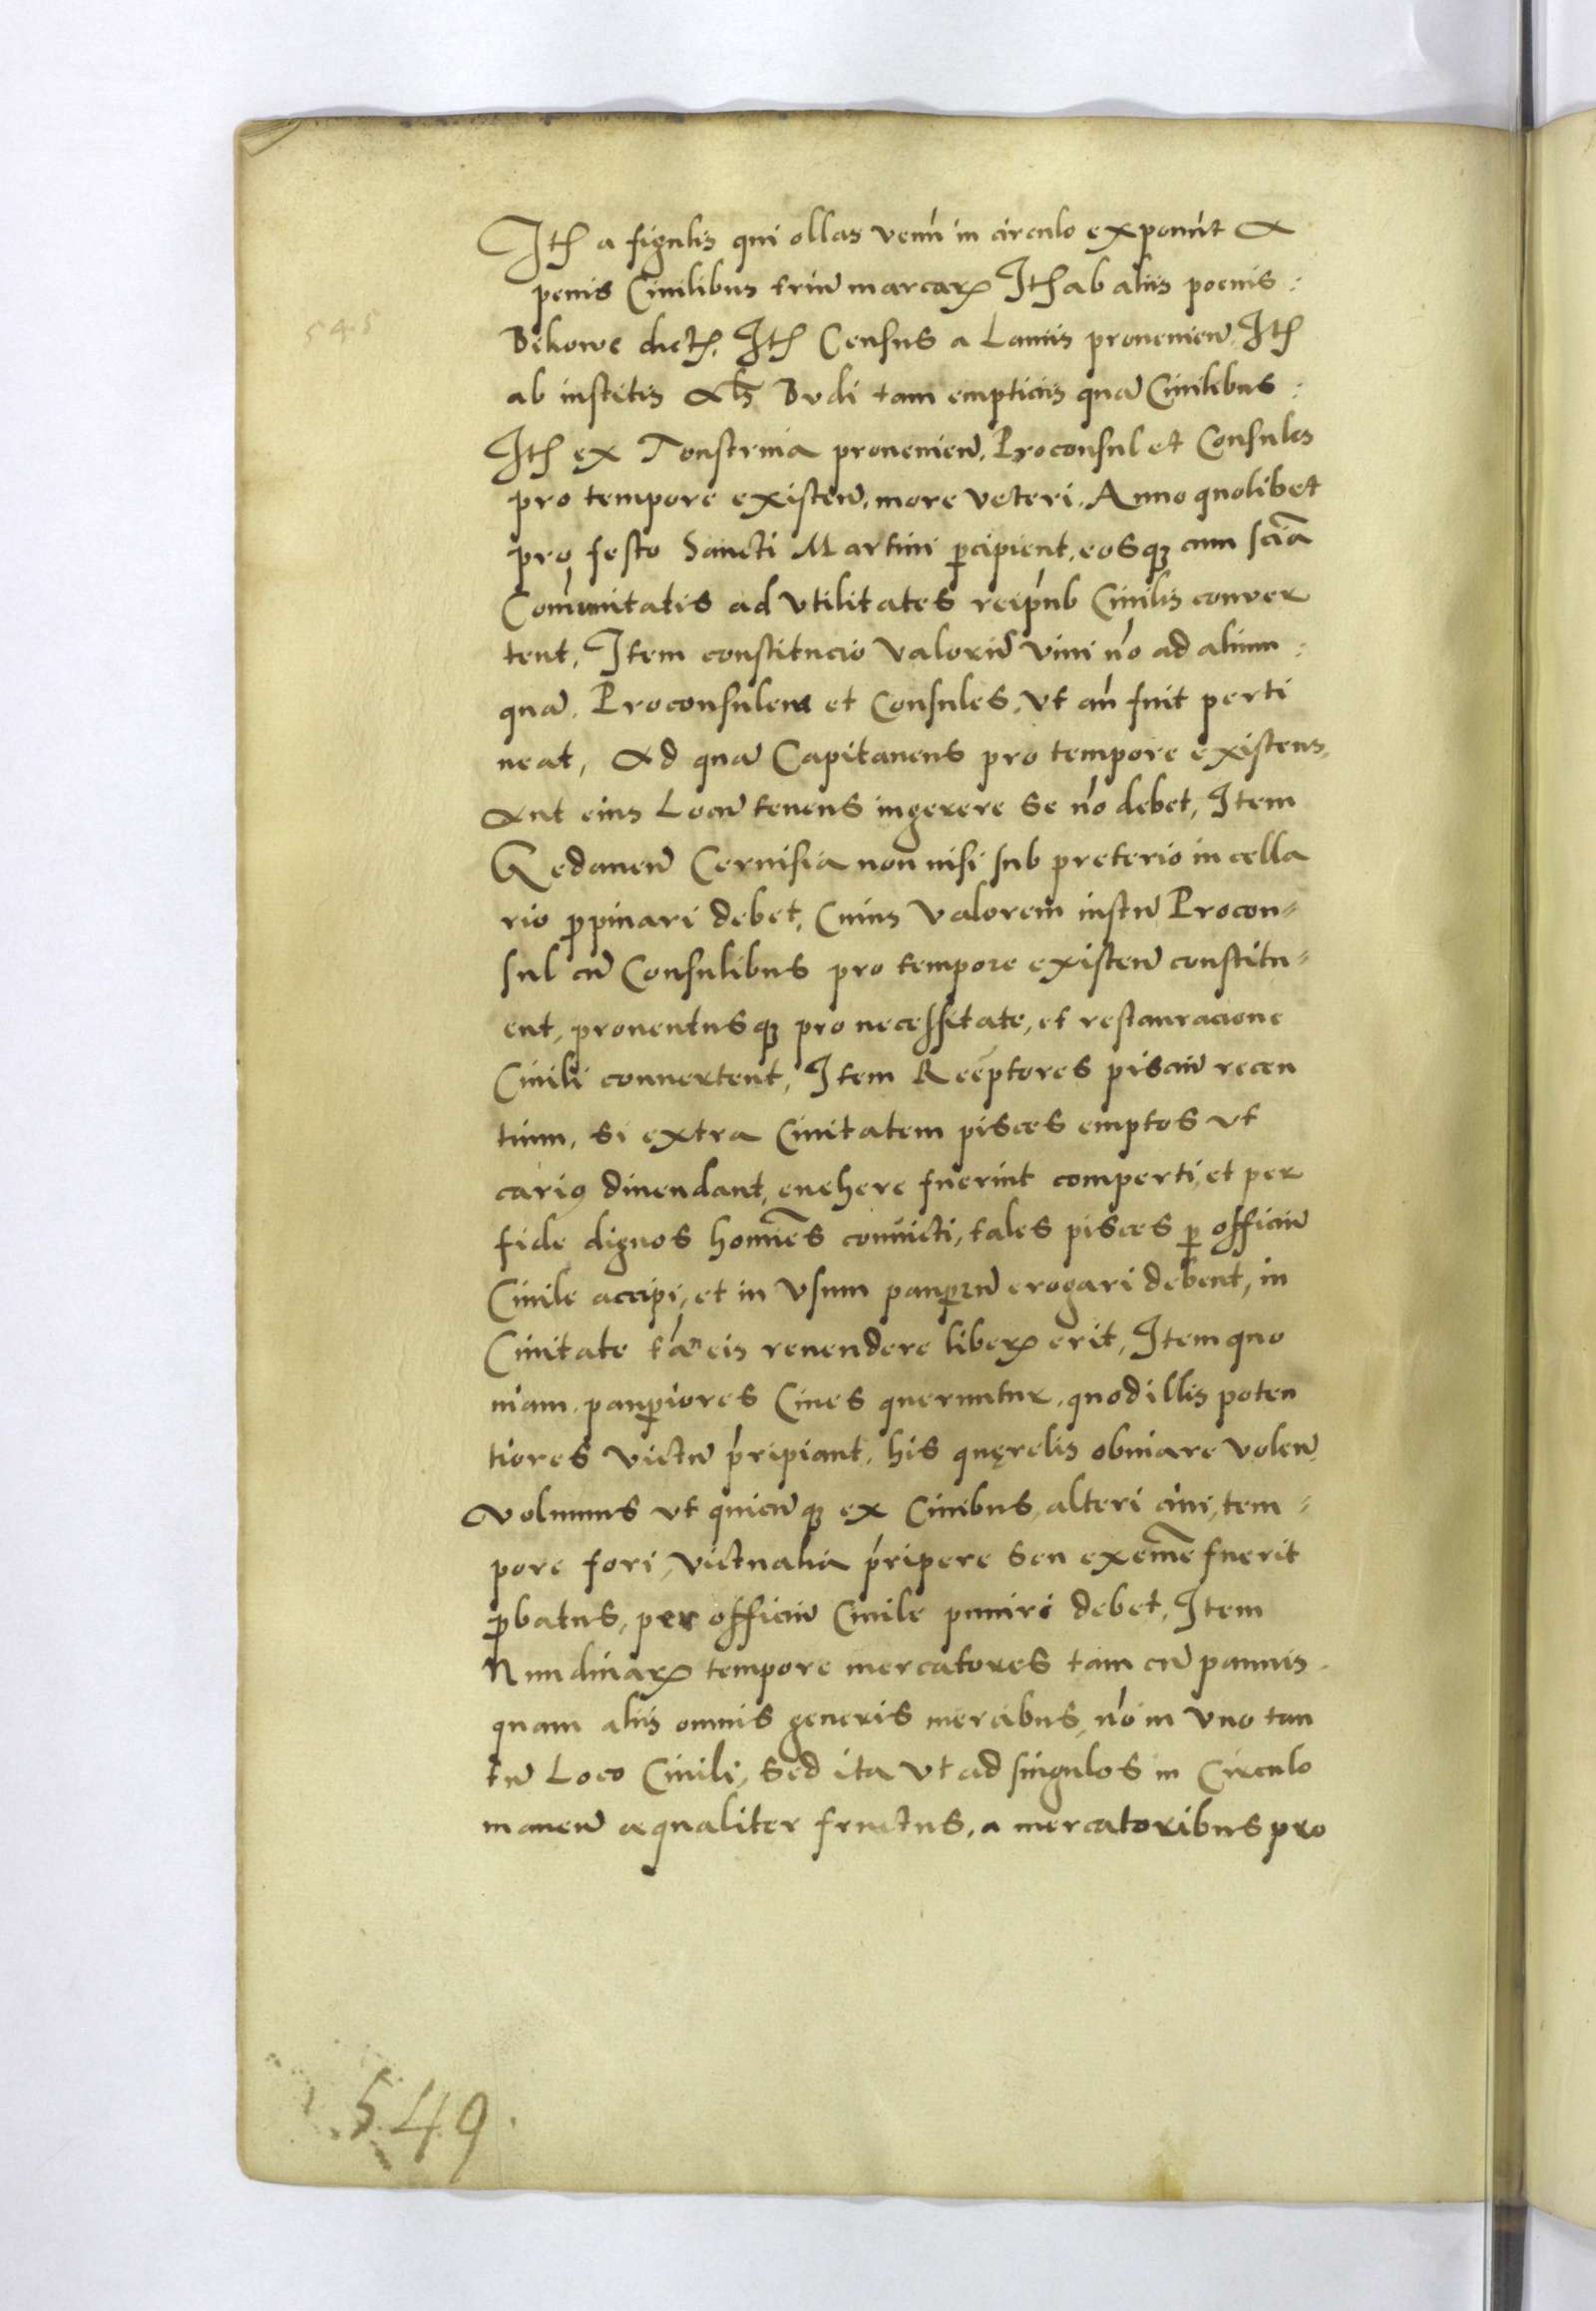 Itē a figulis qui ollas venū in circulo exponūt A
penis Ciuilibus triū marcarꝝ Itē ab aliis poenis :
545
Bikowe dictꝭ. Itē Census a Laniis proueniēn. Itē
ab institis Als Budi tam empticiis quā Ciuilibus :
Itē ex Tonstrina proueniēn. Proconsul et Consules
pro tempore existēn. more veteri. Anno quolibet
pro festo Sancti Martini ꝑcipient, eosqꝫ cum sciā
Cōmunitatis ad vtilitates reipub Ciuilis conuer
tent, Item constitucio valoriū vini nō ad alium :
quā. Proconsulem et Consules, vt añ fuit perti
neat, Ad quā Capitaneus pro tempore existens,
Aut eius Locū tenens ingerere se nō debet, Item
Gedanēn Ceruisia non nisi sub preterio in cella
rio ꝓpinari debet, Cuius valorem iustū Procon-
sul cū Consulibus pro tempore existēn constitu-
ent, prouentusqꝫ pro necessitate, et restauracione
Ciuili conuertent, Item Reeptores pisciū recen
tium, si extra Ciuitatem pisces emptos vt
carius diuendant, euehere fuerint comperti, et per
fide dignos homīes conuicti, tales pisces ꝑ officiū
Ciuile accipi, et in vsum pauꝑū erogari debent, in
Ciuitate tāen eis reuendere liberꝝ erit, Item quo
niam pauꝑiores Ciues queruntur, quod illis poten
tiores victū p̄ripiant, his quęrelis obuiare volēn
volumus vt quicūqꝫ ex Ciuibus, alteri ciui, tem-
pore fori, victualia p̄ripere seu exemē fuerit
ꝓbatus, per officiū Ciuile puniri debet, Item
Nundinarꝝ tempore mercatores tam cū pannis
quam aliis omnis generis mercibus, nō in vno tan
tū Loco Ciuili, sed ita vt ad singulos in Circulo
manēn aequaliter fructus, a mercatoribus pro
549.